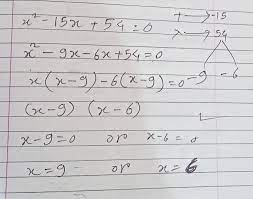 x² - 15x + 54 = 0
+ → -15
x² - 9x - 6x + 54 = 0
x → 54
x(x-9) - 6(x-9) = 0
-9 -6
(x-9) (x-6)
x-9=0 or x-6=0
x=9 or x=6